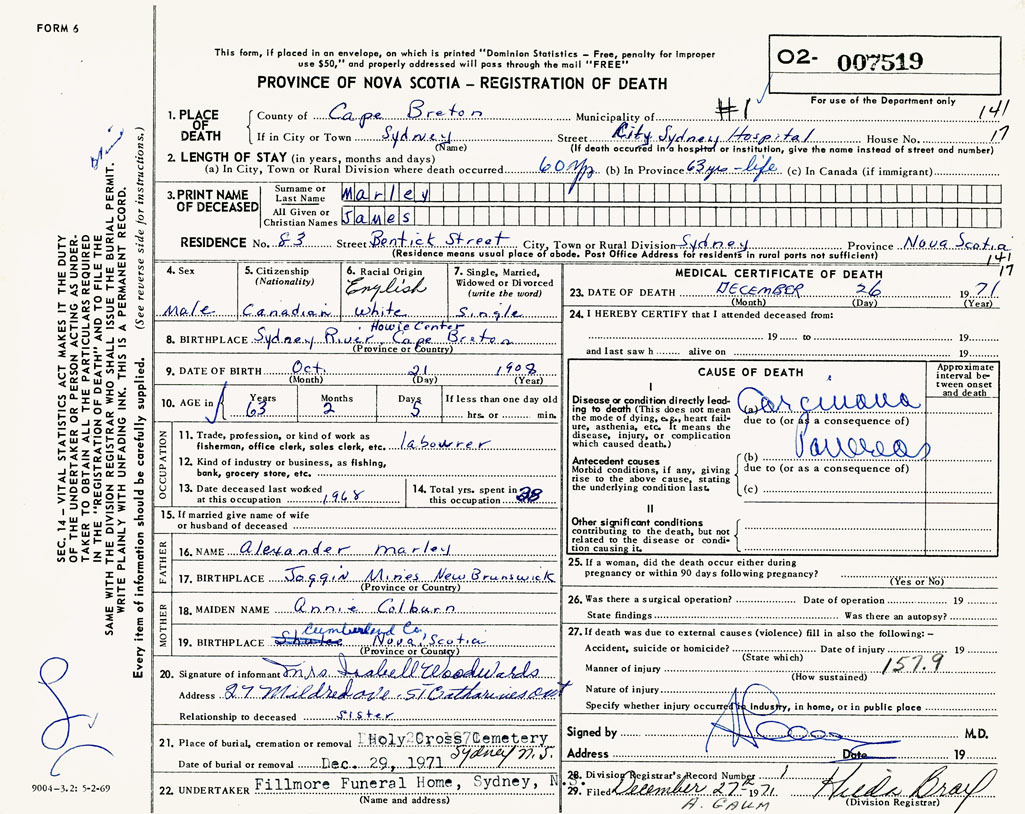 FORM 6
This form, if placed in an envelope, on which is printed "Dominion Statistics – Free, penalty for improper
use $50," and properly addressed will pass through the mail "FREE"
PROVINCE OF NOVA SCOTIA – REGISTRATION OF DEATH
02- 007519
For use of the Department only
1. PLACE OF DEATH
County of Cape Breton Municipality of #1 141
If in City or Town Sydney Street City Sydney Hospital House No. 17
(Name) (If death occurred in a hospital or institution, give the name instead of street and number)
2. LENGTH OF STAY (in years, months and days)
(a) In City, Town or Rural Division where death occurred 60 yrs (b) In Province 63 yrs - life (c) In Canada (if immigrant)
3. PRINT NAME OF DECEASED
Surname or Last Name Marley
All Given or Christian Names James
RESIDENCE No. 83 Street Bentick Street City, Town or Rural Division Sydney Province Nova Scotia
(Residence means usual place of abode. Post Office Address for residents in rural parts not sufficient)
141
17
4. Sex
Male
5. Citizenship
(Nationality)
Canadian
6. Racial Origin
English
White
7. Single, Married,
Widowed or Divorced
(write the word)
Single
Howie Center
8. BIRTHPLACE Sydney River, Cape Breton
(Province or Country)
9. DATE OF BIRTH Oct. 21 1908
(Month) (Day) (Year)
10. AGE in
Years Months Days If less than one day old
63 2 5 hrs. or min.
OCCUPATION
11. Trade, profession, or kind of work as
fisherman, office clerk, sales clerk, etc. labourer
12. Kind of industry or business, as fishing,
bank, grocery store, etc.
13. Date deceased last worked
at this occupation 1968
14. Total yrs. spent in
this occupation
15. If married give name of wife
or husband of deceased
FATHER
16. NAME Alexander Marley
17. BIRTHPLACE Joggin Mines New Brunswick
(Province or Country)
MOTHER
18. MAIDEN NAME Annie Colburn
Cumberland Co.
19. BIRTHPLACE Nova Scotia
(Province or Country)
20. Signature of informant Mrs Isabell Woodwards
Address 27 Mildred ave. St Catharines Ont
Relationship to deceased sister
21. Place of burial, cremation or removal Holy Cross Cemetery
Sydney N.S.
Date of burial or removal Dec. 29, 1971
22. UNDERTAKER Fillmore Funeral Home, Sydney, N.S.
(Name and address)
MEDICAL CERTIFICATE OF DEATH
23. DATE OF DEATH DECEMBER 26 1971
(Month) (Day) (Year)
24. I HEREBY CERTIFY that I attended deceased from:
19 to 19
and last saw h alive on 19
CAUSE OF DEATH
Approximate interval between onset and death
I
Disease or condition directly leading to death (This does not mean the mode of dying, e.g., heart failure, asthenia, etc. It means the disease, injury, or complication which caused death.)
(a) Carcinoma
due to (or as a consequence of)
Antecedent causes
Morbid conditions, if any, giving rise to the above cause, stating the underlying condition last.
(b) Pancreas
due to (or as a consequence of)
(c)
II
Other significant conditions
contributing to the death, but not
related to the disease or condition causing it.
25. If a woman, did the death occur either during
pregnancy or within 90 days following pregnancy?
(Yes or No)
26. Was there a surgical operation? Date of operation 19
State findings Was there an autopsy?
27. If death was due to external causes (violence) fill in also the following: –
Accident, suicide or homicide? Date of injury 19
(State which)
Manner of injury 157.9
(How sustained)
Nature of injury
Specify whether injury occurred in industry, in home, or in public place
Signed by M.D.
Address Date 19
28. Division Registrar's Record Number 1
29. Filed December 27th 1971 Hilda Bray
A. GAUM (Division Registrar)
SEC. 14 – VITAL STATISTICS ACT MAKES IT THE DUTY
OF THE UNDERTAKER OR PERSON ACTING AS UNDER-
TAKER TO OBTAIN ALL THE PARTICULARS REQUIRED
IN THE "REGISTRATION OF DEATH" AND TO FILE THE
SAME WITH THE DIVISION REGISTRAR WHO SHALL ISSUE THE BURIAL PERMIT.
WRITE PLAINLY WITH UNFADING INK. THIS IS A PERMANENT RECORD.
Every item of information should be carefully supplied. (See reverse side for instructions.)
9004-3.2: 5-2-69